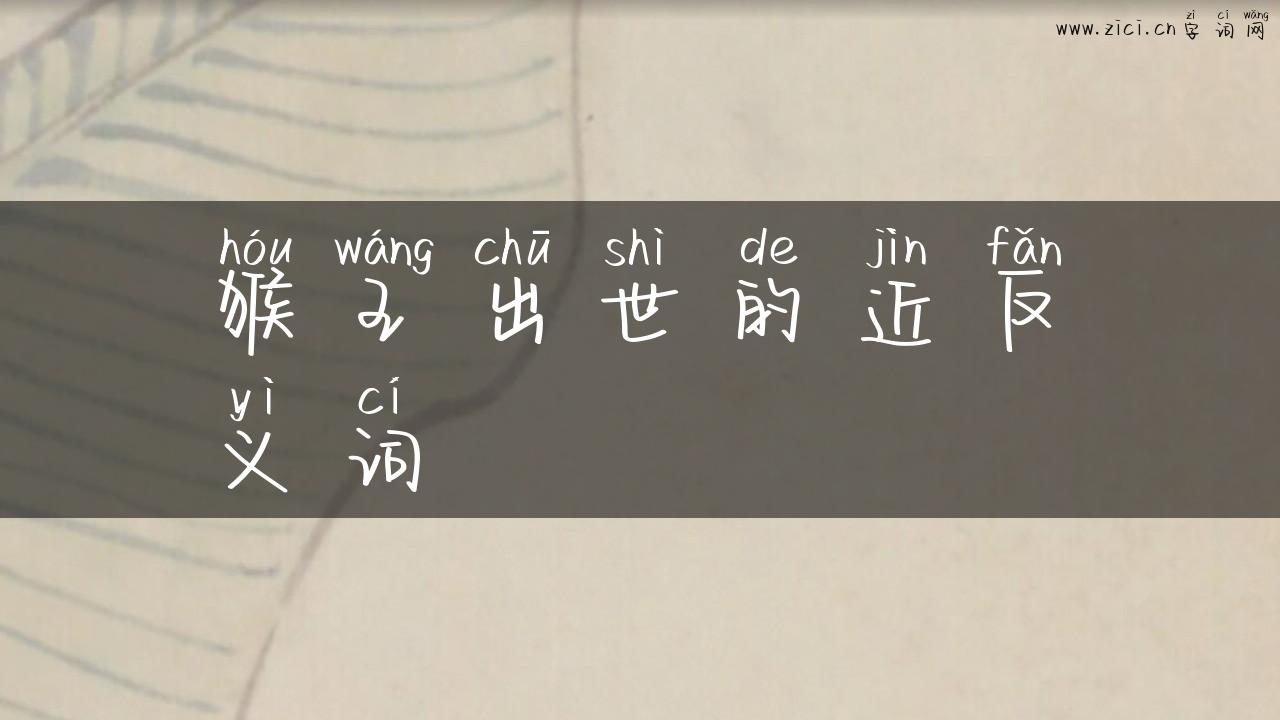 zì cí wǎng
www.zici.cn 字 词 网
hóu wáng chū shì de jìn fǎn
猴 王 出 世 的 近 反
yì cí
义 词